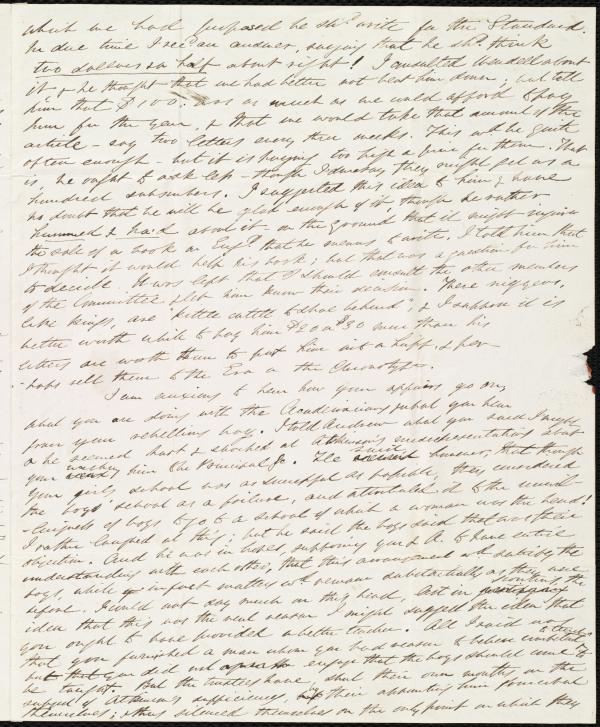 which we had proposed he shd. write for the Standard.
In due time I recd. an answer, saying that he shd. think
two dollars & a half about right! I consulted Wendell about
it & he thought that we had better not beat him down, but tell
him that $100. was as much as we could afford to pay
him for the year, & that we would take that amount of the
article - say two letters every three weeks. This wd. be quite
often enough - but it is paying too high a price for them. That
is, he ought to ask less - though I dare say they might get us a
hundred subscribers. I suggested this idea to him & have
no doubt that he will be glad enough of it, though he rather
hummed & ha'd about it on the ground that it might injure
the sale of a book on Engd. that he means to write. I told him that
I thought it would help his book; but that was a question for him
to decide. It was left that I should consult the other members
of the Committee & let him know their decision. These niggers,
like kings, are "kittle cattle to shoe behind", & I suppose it is
better worth while to pay him $20 or $30 more than his
letters are worth than to put him into a huff, & per-
-haps sell them to the Era or the Chronotype.
I am anxious to hear how your affairs go on,
what you are doing with the Academicians & what you hear
from your rebelling boys. I told Andrew what you said I might
& he seemed hurt & shocked at Atkinson's misrepresentations about
your wishing him the Principal &c. He said however, that though
your girls school was as successful as possible, they considered
the boys' school as a failure, and attributed it to the unwill-
-ingness of boys to go to a school of which a woman was the head!
I rather laughed at this; but he said the boys said that was their
objection. And he was in hopes, supposing you & A. to have entire
understanding with each other, that this arrangement wd. satisfy the
boys, while in fact matters wd. remain substantially as they were
before. I could not say much on this head, lest in the
idea that this was the real reason I might suggest the idea that
you ought to have provided a better teacher. All I said was
that you furnished a man whom you had reason to believe competent
but that you did not engage that the boys should come to
be taught. But the trustees have shut their own mouths on the
subject of Atkinson's sufficiency, by their appointing him principal
themselves; & thus silenced themselves on the only point on which they